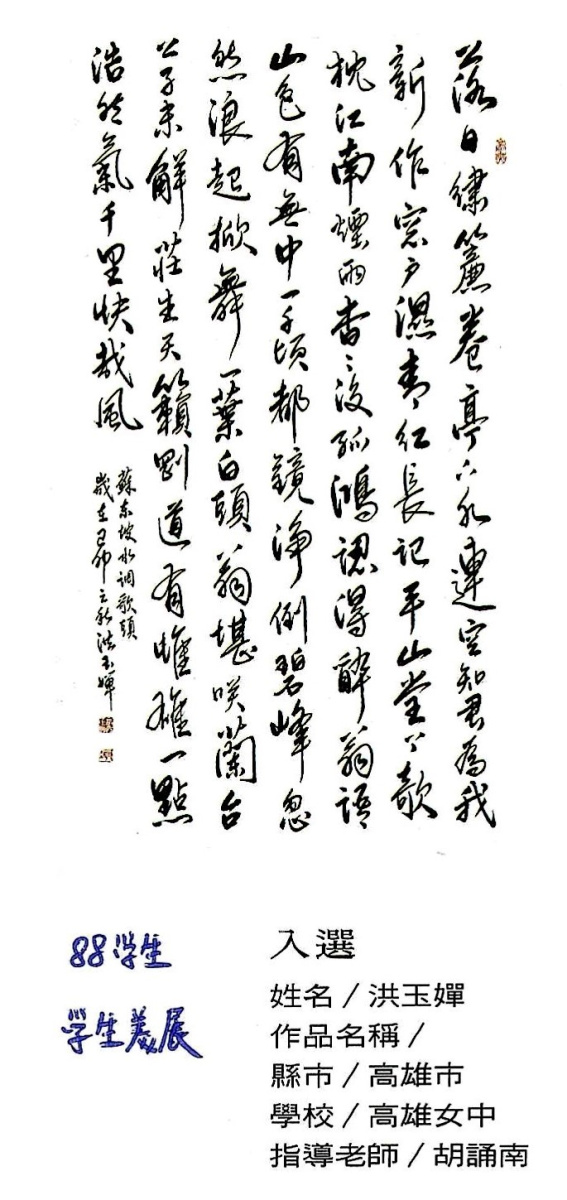 落日繡簾卷亭下水連空知君為我
新作窓戶濕青紅長記平山堂上欹
枕江南煙雨杳〻沒孤鴻認得醉翁語
山色有無中一千頃都鏡淨倒碧峰忽
然浪起掀舞一葉白頭翁堪咲蘭台
公子未解莊生天籟剛道有雌雄一點
浩然氣千里快哉風
蘇東坡水调歌頭
歲在己卯之秋洪玉嬋
88学生
學生美展
入選
姓名／洪玉嬋
作品名稱／
縣市／高雄市
學校／高雄女中
指導老師／胡誦南